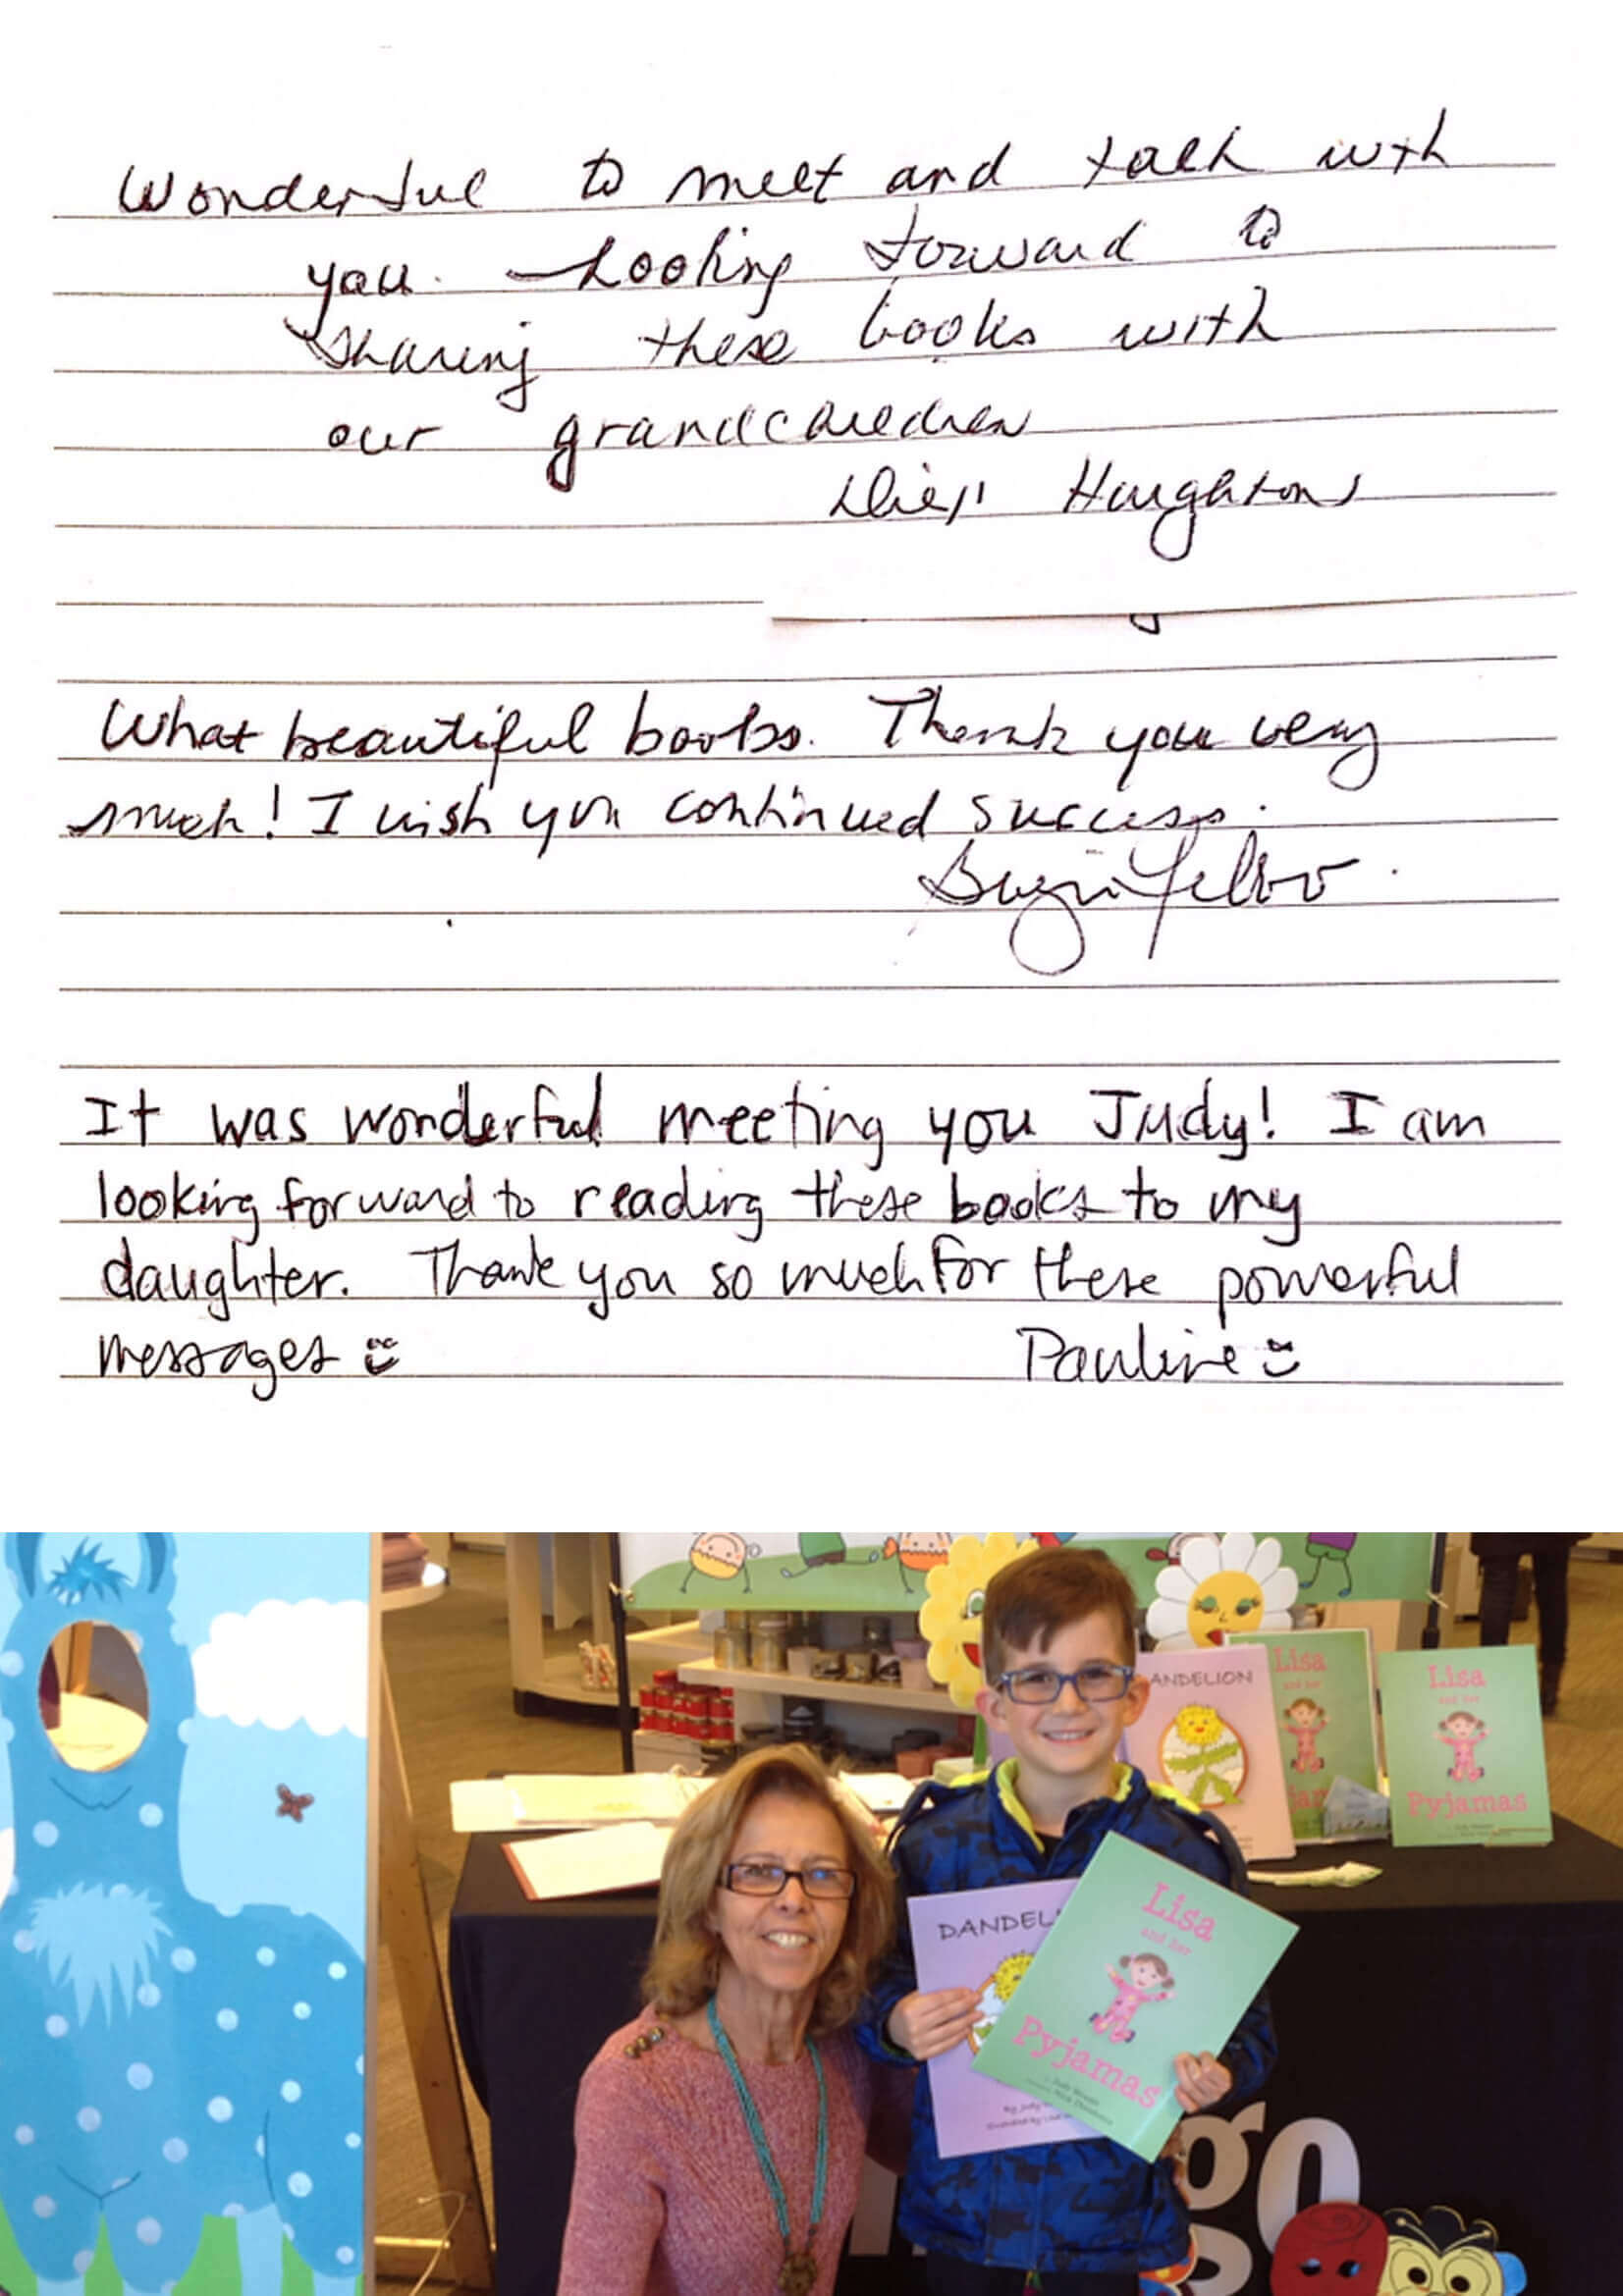 Wonderful to meet and talk with
you. Looking forward to
sharing these books with
our grandchildren
Houghtons
What beautiful books. Thank you very
much! I wish you continued success.
It was wonderful meeting you Judy! I am
looking forward to reading these books to my
daughter. Thank you so much for these powerful
messages
Pauline
ANDELION
Lisa
and her
Lisa
and her
Pyjamas
DANDEL
Lisa
and her
Pyjamas
by Judy
go